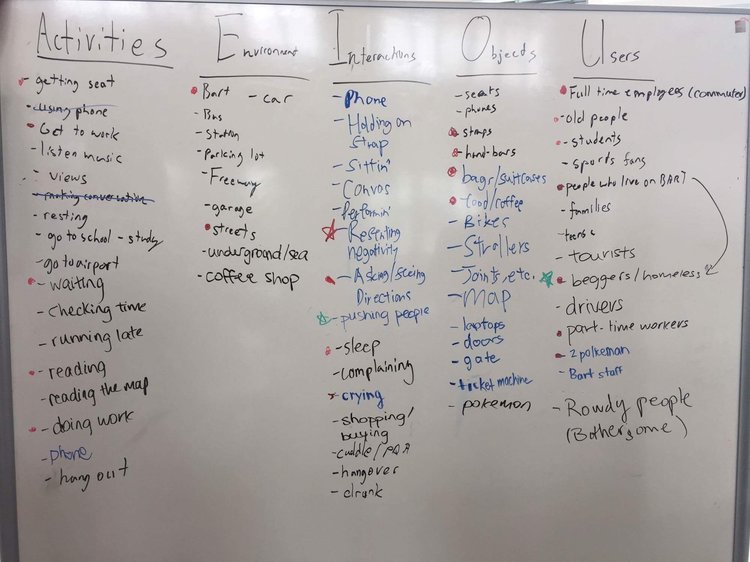 Activities
getting seat
- using phone
- Get to work
- listen music
- views
- making conversation
- resting
- go to school - study
- go to airport
- waiting
- checking time
- running late
- reading
- reading the map
- doing work
- phone
- hang out
Environment
- Bart
- car
- Bus
- Station
- Parking lot
- Freeway
- garage
- streets
- underground/sea
- coffee shop
Interactions
- Phone
- Holding on
Strap
- Sittin'
- Convos
- Performin'
- Resenting
negativity
- Asking/seeing
Directions
- pushing people
- sleep
- complaining
- crying
- shopping/
buying
- cuddle/PDA
- hangover
- drunk
Objects
- seats
- phones
- straps
- hand-bars
- bags/suitcases
- food/coffee
- Bikes
- Strollers
- Joints, etc.
- Map
- laptops
- doors
- gate
- ticket machine
- pokemon
Users
- Full time employees (commuter)
- old people
- students
- sports fans
- people who live on BART
- families
- tourists
- beggers/homeless
- drivers
- part-time workers
- Bart staff
- Rowdy people
(Bothersome)